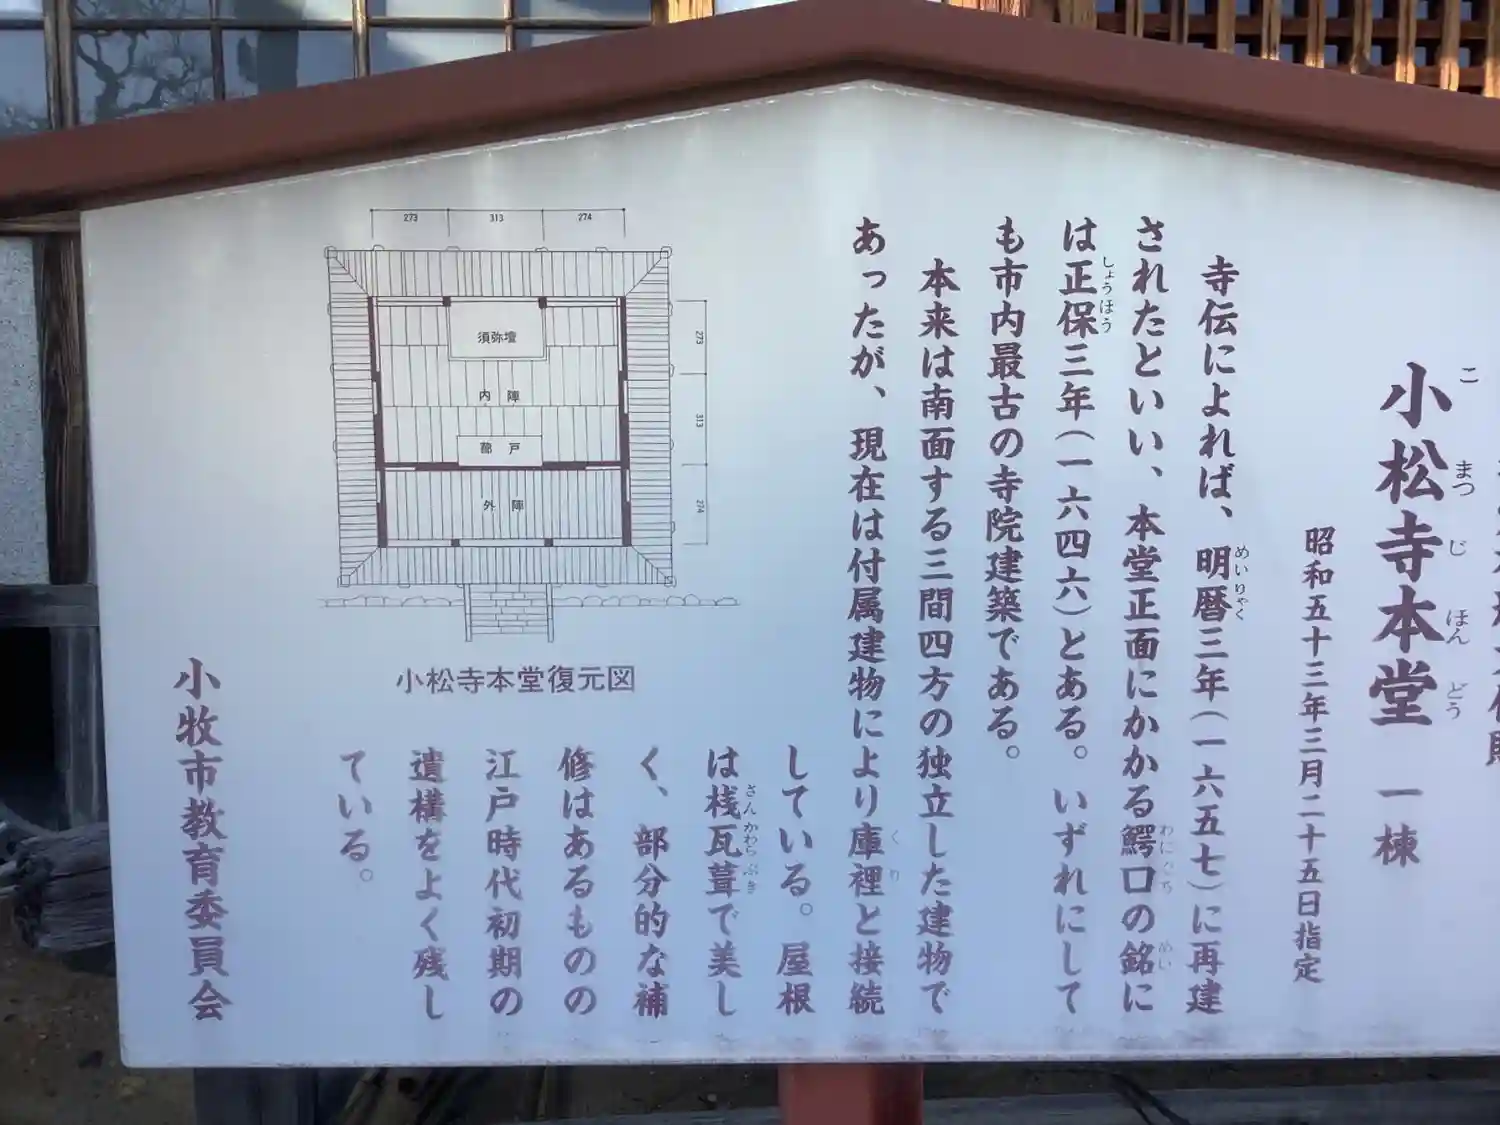 小松寺本堂 一棟
こ まつ じ ほん どう
昭和五十三年三月二十五日指定
寺伝によれば、明暦三年(一六五七)に再建
めいりゃく
されたといい、本堂正面にかかる鰐口の銘に
わにぐち めい
は正保三年(一六四六)とある。いずれにして
しょうほう
も市内最古の寺院建築である。
本来は南面する三間四方の独立した建物で
あったが、現在は付属建物により庫裡と接続
くり
している。屋根
は桟瓦葺で美し
さんかわらぶき
く、部分的な補
修はあるものの
江戸時代初期の
遺構をよく残し
ている。
273 313 274
須弥壇
内陣
蔀戸
外陣
273
313
274
小松寺本堂復元図
小牧市教育委員会